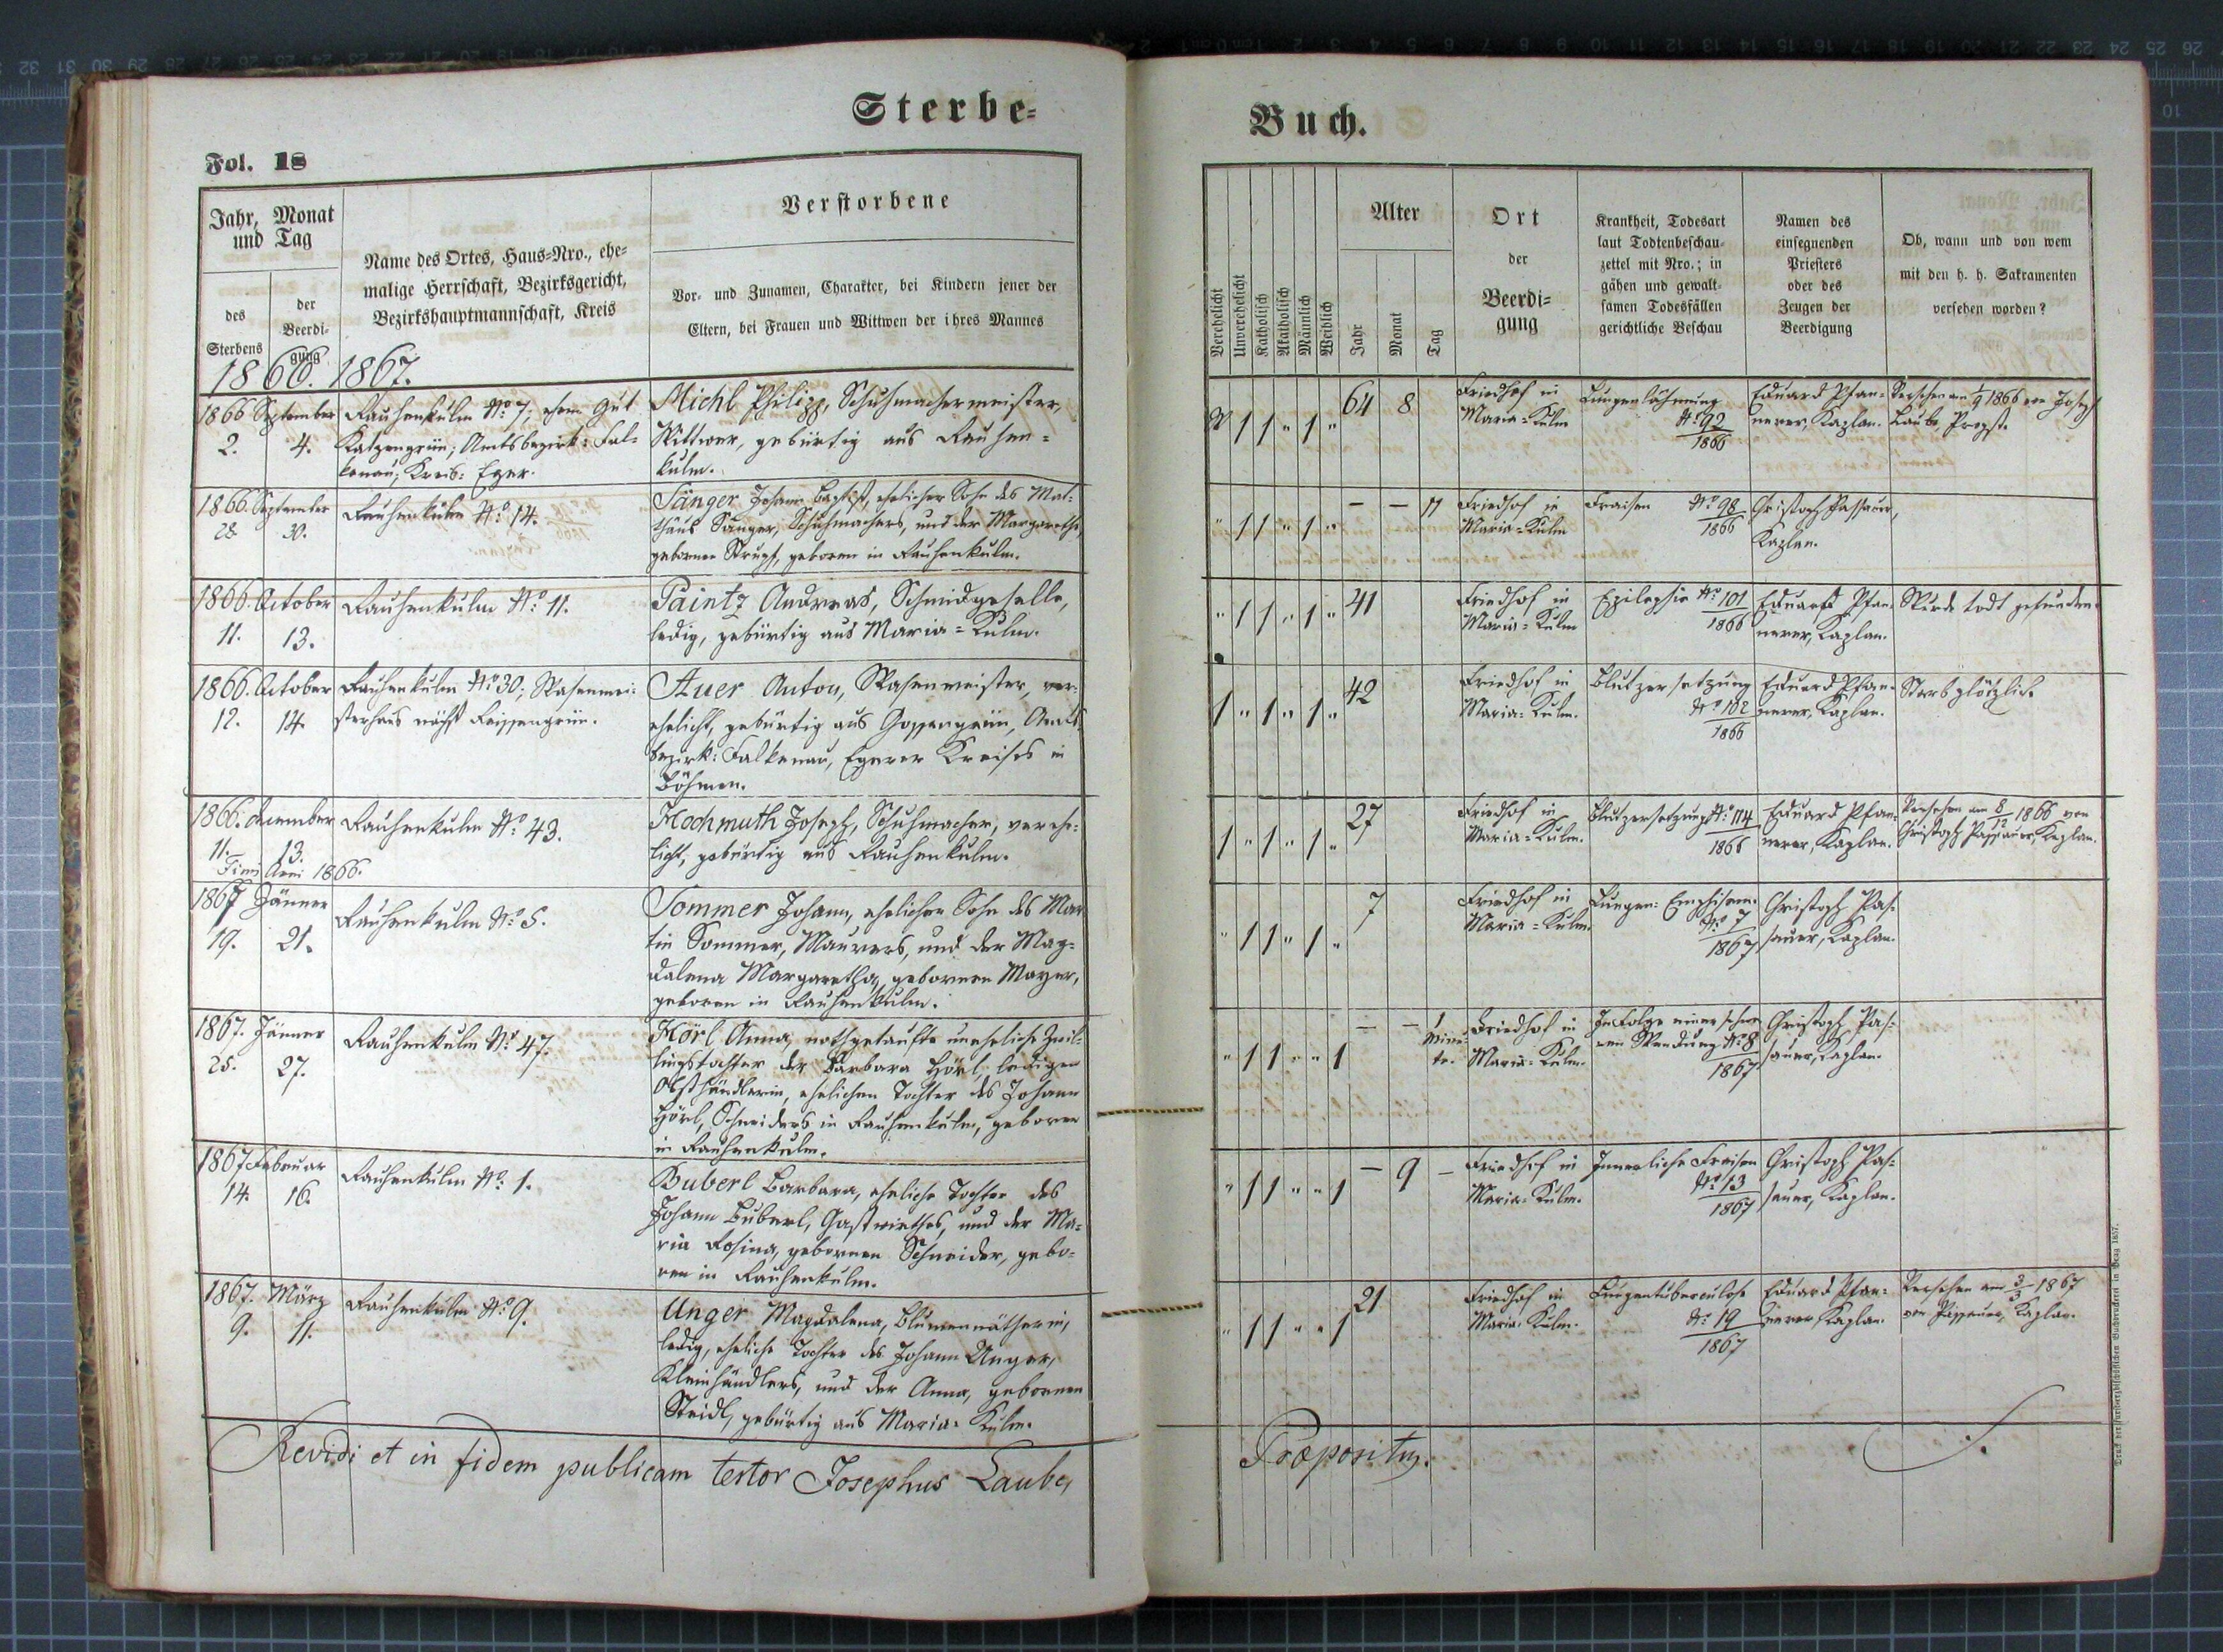 Sterbe-
Fol. 18
Jahr, Monat
und Tag
des
Sterbens
der
Beerdi-
gung
Name des Ortes, Haus-Nro., ehe-
malige Herrschaft, Bezirksgericht,
Bezirkshauptmannschaft, Kreis
Verstorbene
Vor- und Zunamen, Charakter, bei Kindern jener der
Eltern, bei Frauen und Wittwen der ihres Mannes
1866. 1867.
1866 September
2. 4.
Rauhenkulm No. 7; ehem. Gut
Katzengrün; Amtsbezirk: Fal-
kenau; Kreis: Eger.
Michl Philipp, Schuhmachermeister,
Wittwer, gebürtig aus Rauhen-
kulm.
1866. September
28. 30.
Rauhenkulm No. 14.
Sänger Johann Baptist, ehelicher Sohn des Mat-
thäus Sänger, Schuhmachers, und der Margaretha,
gebornen Strupf, geboren in Rauhenkulm.
1866. October
11. 13.
Rauhenkulm No. 11.
Paintz Andreas, Schmidgeselle,
ledig, gebürtig aus Maria-Kulm.
1866. October
12. 14.
Rauhenkulm No. 30; Wasenmei-
sterhaus nächst Reissengrün.
Auer Anton, Wasenmeister, ver-
ehelicht, gebürtig aus Gossengrün, Amts-
bezirk: Falkenau, Egerer Kreises in
Böhmen.
1866. December
11. 13.
Rauhenkulm No. 43.
Hochmuth Joseph, Schuhmacher, verehe-
licht, gebürtig aus Rauhenkulm.
Finis Anni 1866.
1867 Jänner
19. 21.
Rauhenkulm No. 5.
Sommer Johann, ehelicher Sohn des Mar
tin Sommer, Maurers, und der Mag-
dalena Margaretha, gebornen Mayer,
geboren in Rauhenkulm.
1867. Jänner
25. 27.
Rauhenkulm No. 47.
Hörl Anna, nothgetaufte uneheliche Zwil-
lingstochter der Barbara Hörl, ledigen
Obsthändlerin, ehelichen Tochter des Johann
Hörl, Schneiders in Rauhenkulm, geboren
in Rauhenkulm.
1867 Februar
14. 16.
Rauhenkulm No. 1.
Buberl Barbara, eheliche Tochter des
Johann Buberl, Gastwirthes, und der Ma-
ria Rosina, gebornen Schneider, gebo-
ren in Rauhenkulm.
1867. März
9. 11.
Rauhenkulm No. 9.
Unger Magdalena, Blumennätherin,
ledig, eheliche Tochter des Johann Unger,
Kleinhändlers, und der Anna, gebornen
Steidl, gebürtig aus Maria-Kulm.
Revidi et in fidem publicam testor Josephus Laube,
Buch.
Verehelicht
Unverehelicht
Katholisch
Akatholisch
Männlich
Weiblich
Alter
Jahr
Monat
Tag
Ort
der
Beerdi-
gung
Krankheit, Todesart
laut Todtenbeschau-
zettel mit Nro.; in
gähen und gewalt-
samen Todesfällen
gerichtliche Beschau
Namen des
einsegnenden
Priesters
oder des
Zeugen der
Beerdigung
Ob, wann und von wem
mit den h. h. Sakramenten
versehen worden?
W 1 1 " 1 " 64 8
Friedhof in
Maria-Kulm
Lungenlähmung
No. 92
1866
Eduard Pfan-
nerer, Kaplan.
Versehen am 1/9 1866 von Joseph
Laube, Propst.
" 1 1 " 1 " — — 17
Friedhof in
Maria-Kulm
Fraisen No. 98
1866
Christoph Passauer,
Kaplan.
" 1 1 " 1 " 41
Friedhof in
Maria-Kulm
Epilepsie No. 101
1866
Eduard Pfan-
nerer, Kaplan.
Wurde todt gefunden.
1 " 1 " 1 " 42
Friedhof in
Maria-Kulm.
Blutzersetzung
No. 102
1866
Eduard Pfan-
nerer, Kaplan.
Starb plötzlich
1 " 1 " 1 " 27
Friedhof in
Maria-Kulm.
Blutzersetzung No. 114
1866
Eduard Pfan-
nerer, Kaplan.
Versehen am 8/12 1866 von
Christoph Passauer, Kaplan.
" 1 1 " 1 " 7
Friedhof in
Maria-Kulm.
Lungen-Emphisem.
No. 7
1867
Christoph Pas-
sauer, Kaplan.
" 1 1 " " 1 — — 1
Minu-
te.
Friedhof in
Maria-Kulm.
In Folge einer schwe
ren Wendung No. 8
1867
Christoph Pas-
sauer, Kaplan.
" 1 1 " " 1 — 9 —
Friedhof in
Maria-Kulm.
Innerliche Fraisen
No. 13
1867
Christoph Pas-
sauer, Kaplan.
" 1 1 " " 1 21
Friedhof in
Maria-Kulm.
Lungentuberculose
No. 19
1867
Eduard Pfan-
nerer, Kaplan.
Versehen am 3/3 1867
von Passauer, Kaplan.
Præpositus.
Druck der fürsterzbischöflichen Buchdruckerei in Prag 1857.